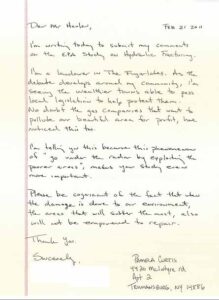 Dear Mr Hanlon,
FEB 21 2011
I'm writing today to submit my comments
on the EPA Study on Hydraulic Fracturing.
I'm a landowner in The Fingerlakes. As the
debate develops around my community, I'm
seeing the wealthier towns able to pass
local legislation to help protect them.
No doubt the gas companies that want to
pollute our beautiful area for profit, have
noticed this too.
I'm telling you this because this phenomenon
of "go under the radar by exploiting the
poorer areas", makes your study even
more important.
Please be cognizant of the fact that when the
damage is done to our environment,
the areas that will suffer the most, also
will not be empowered to repair.
Thank You.
Sincerely,
PAMELA CURTIS
McIntyre rd
Apt 2
TRUMANSBURG, NY 14886